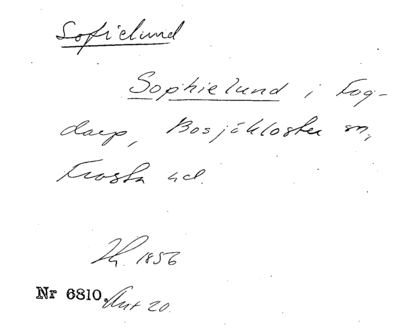 Sofielund
Sophielund i Fog-
darp, Bosjökloster sn,
Frosta hd.
1856
Nr 6810. Akt 20.